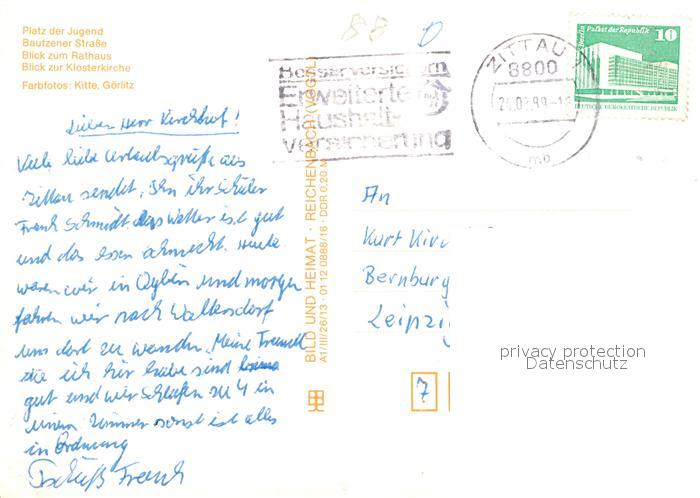 Platz der Jugend
Bautzener Straße
Blick zum Rathaus
Blick zur Klosterkirche
Farbfotos: Kitte, Görlitz
88
0
Besser versichern
Erweiterte
Haushalt-
versicherung
ZITTAU
8800
mo
Berlin, Palast der Republik 10
DEUTSCHE DEMOKRATISCHE REPUBLIK
Lieber Herr
Viele liebe Urlaubsgrüße aus
Zittau sendet, Ihn ihr Schüler
Frank Schmidt das Wetter ist gut
und das essen schmeckt. Heute
waren wir in Oybin und morgen
fahren wir nach Waltersdorf
um dort zu wandern. Meine Freunde
die ich hier habe sind
gut und wir schlafen zu 4 in
einem Zimmer sonst ist alles
in Ordnung
Tschüß Frank
BILD UND HEIMAT · REICHENBACH (VOGTL)
A1/III/26/13 · 01 12 0888/16 · DDR 0,20 M
An
Kurt
Bernburg
Leipzig
7
privacy protection
Datenschutz